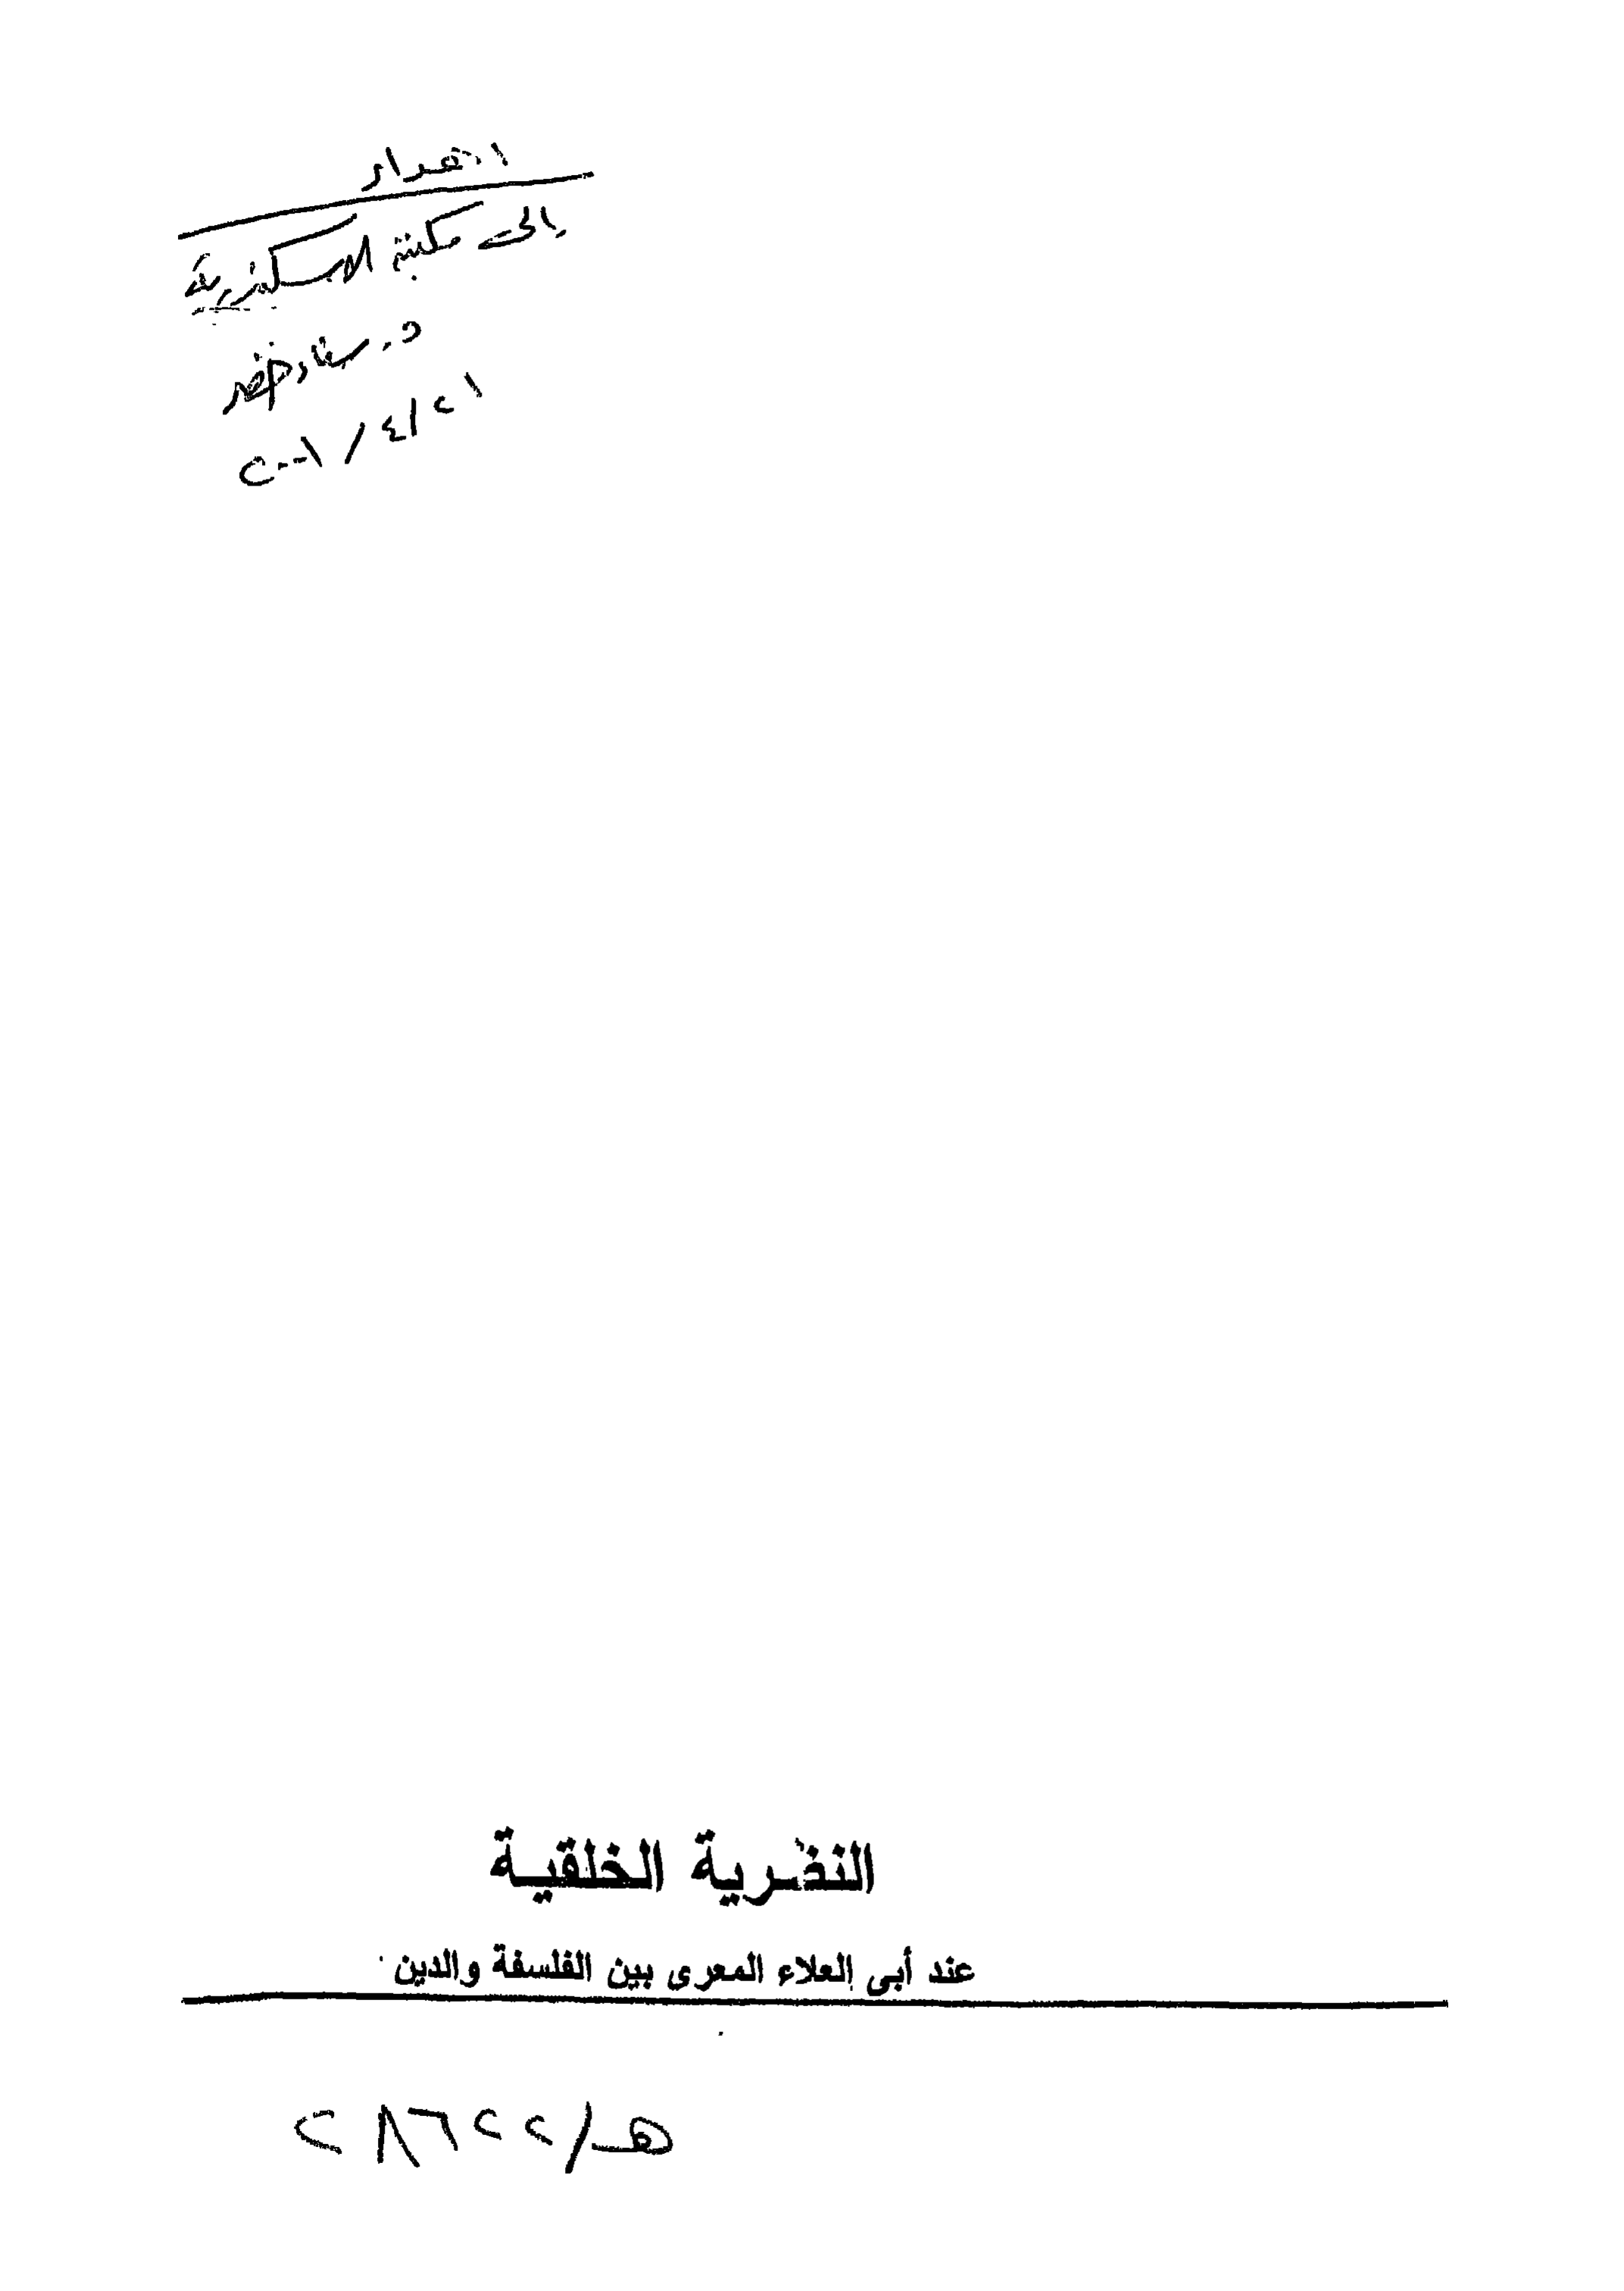 إهداء
إلى مكتبة الاسكندرية
د. سناء خضر
٢١/٤/٢٠٠١
النظرية الخلقية
عند أبى العلاء المعرى بين الفلسفة والدين
هـ/٢٨٦٢٢